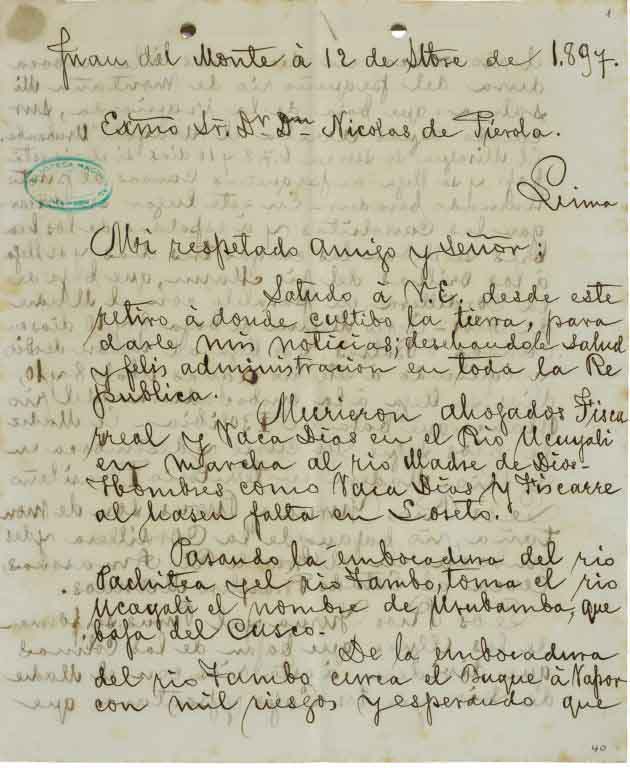 1
Juan del Monte à 12 de Stbre de 1.897.
Exmo Sr. Dr. Dn Nicolas de Piérola.
Lima
Mi respetado amigo y Señor;
Saludo à V.E. desde este
retiro à donde cultibo la tierra, para
darle mis noticias; deseandole salud
y felis administracion en toda la Re
pública.
Murieron ahogados Fisca
rreal y Vaca Dias en el Rio Ucuyali
en marcha al rio Madre de Dios-
Hombres como Vaca Dias y Fiscarre
al hasen falta en Loreto.
Pasando la embocadura del rio
Pachitea y el rio Tambo, toma el rio
Ucayali el nombre de Urubamba, que
baja del Cusco-
De la embocadura
del rio Tambo surca el Buque à Vapor
con mil riesgos y esperando que
40